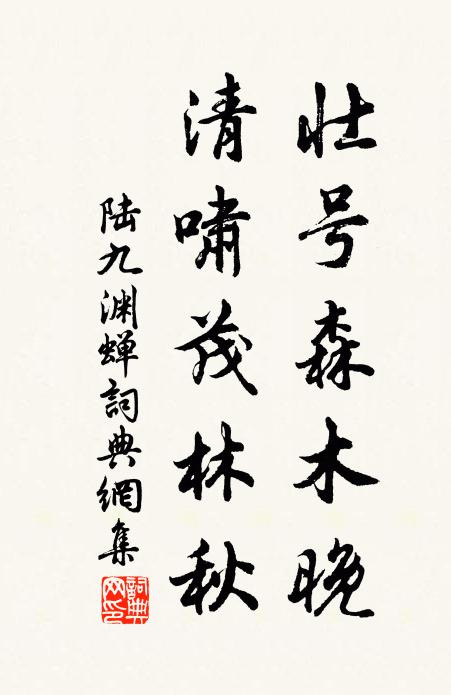 壮号森木晚
清啸茂林秋
陆九渊蝉詞典網集
詞典网印